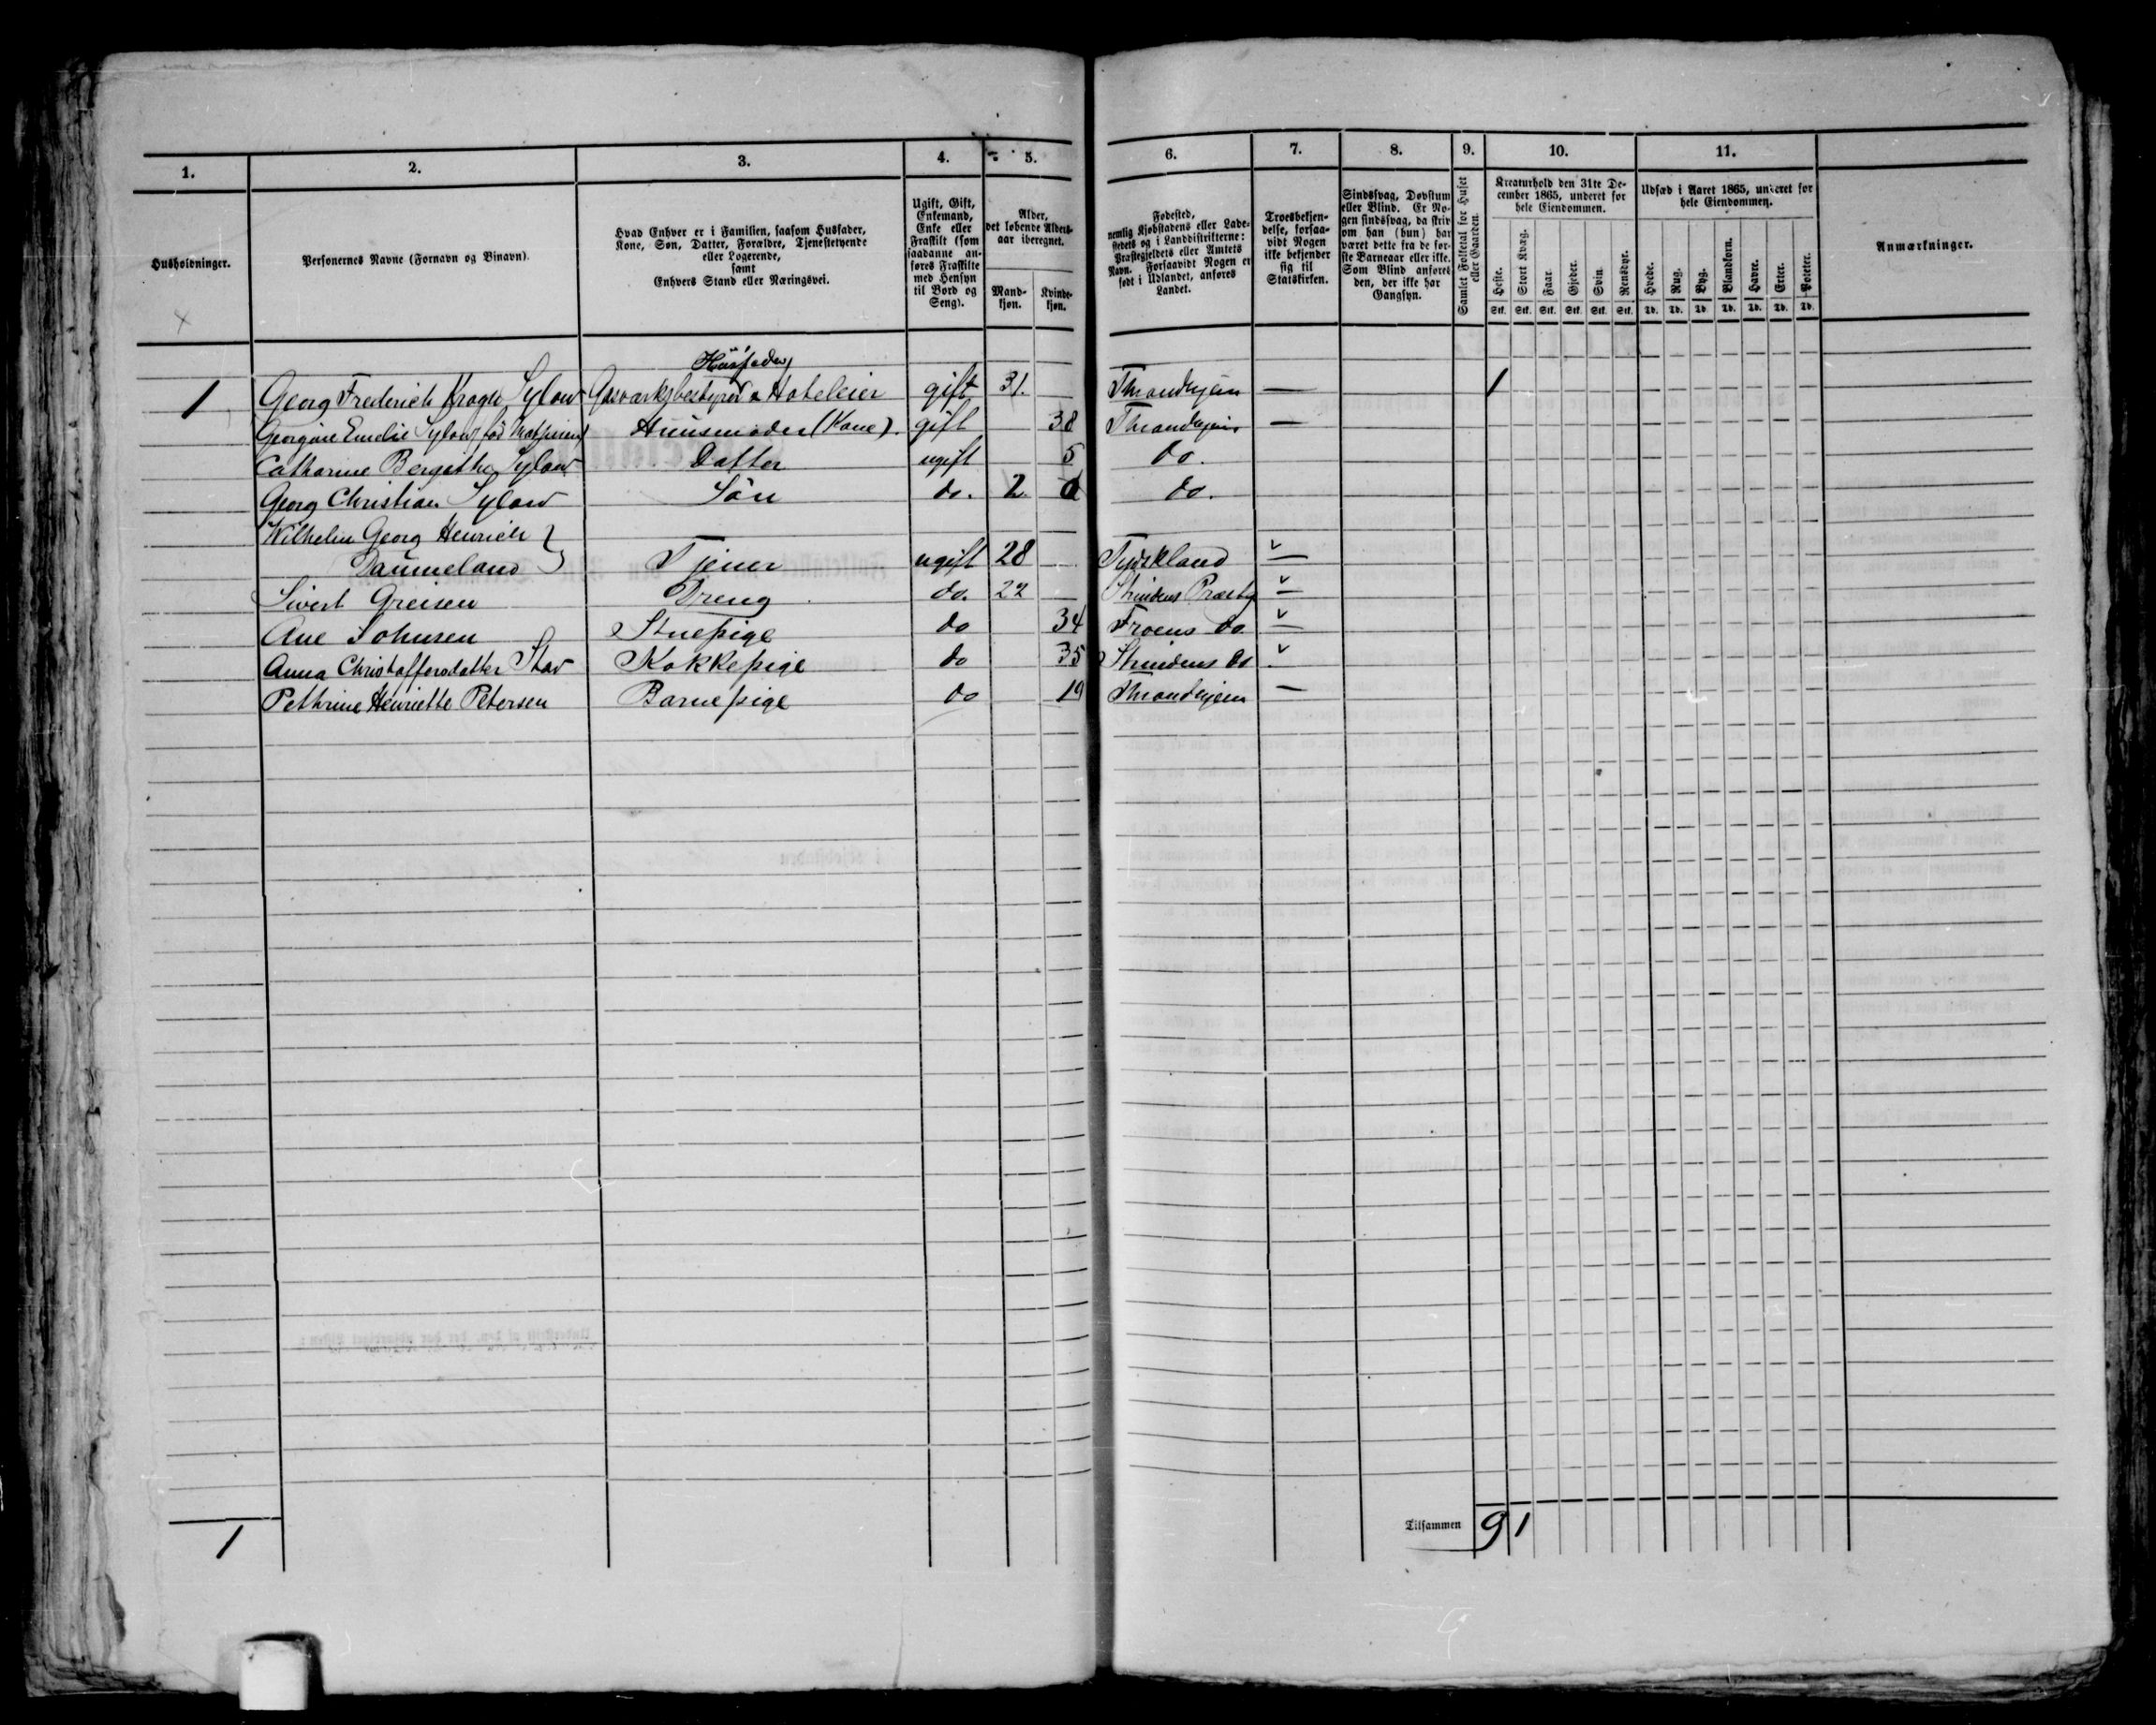 1. 2. 3. 4. 5. 6. 7. 8. 9. 10. 11.
Husholdninger.
Personernes Navne (Fornavn og Binavn).
Hvad Enhver er i Familien, saasom Husfader,
Kone, Søn, Datter, Forældre, Tjenestetyende
eller Logerende,
samt
Enhvers Stand eller Næringsvei.
Ugift, Gift,
Enkemand,
Enke eller
Fraskilt (som
saadanne an-
føres Fraskilte
med Hensyn
til Bord og
Seng).
Alder,
det løbende Alders-
aar iberegnet.
Mand-
kjøn.
Kvinde-
kjøn.
Fødested,
nemlig Kjøbstadens eller Lade-
stedets og i Landdistrikterne:
Præstegjeldets eller Amtets
Navn. Forsaavidt Nogen er
født i Udlandet, anføres
Landet.
Troesbekjen-
delse, forsaa-
vidt Nogen
ikke bekjender
sig til
Statskirken.
Sindssvag, Døvstum
eller Blind. Er No-
gen sindssvag, da skriv
om han (hun) har
været dette fra de før-
ste Barneaar eller ikke.
Som Blind anføres
den, der ikke har
Gangsyn.
Samlet Folketal for Huset
eller Gaarden.
Kreaturhold den 31te De-
cember 1865, underet for
hele Eiendommen.
Heste. Stort Kvæg. Faar. Gjeder. Svin. Rensdyr.
Stk. Stk. Stk. Stk. Stk. Stk.
Udsæd i Aaret 1865, underet for
hele Eiendommen.
Hvede. Rug. Byg. Blandkorn. Havre. Erter. Poteter.
Td. Td. Td. Td. Td. Td. Td.
Anmærkninger.
Huusfader
1 Georg Frederich Krogh Sylow Gasværksbestyrer & Hoteleier gift 31. Throndhjem — 1
Georgine Emelie Sylow fød Huusmoder (Kone). gift 38 Throndhjem —
Catharine Bergithe Sylow Datter ugift 5 do.
Georg Christian Sylow Søn do. 2 do.
Wilhelm Georg Henrich }
Daumeland Tjener ugift 28 Tydskland —
Sivert Greisen Dreng do. 22 Strindens Præstg —
Ane Johnsen Stuepige do 34 Froens do —
Anna Christoffersdatter Stav Kokkepige do 35 Strindens do
Pethrine Henriette Petersen Barnepige do 19 Throndhjem —
Tilsammen 9 1
1